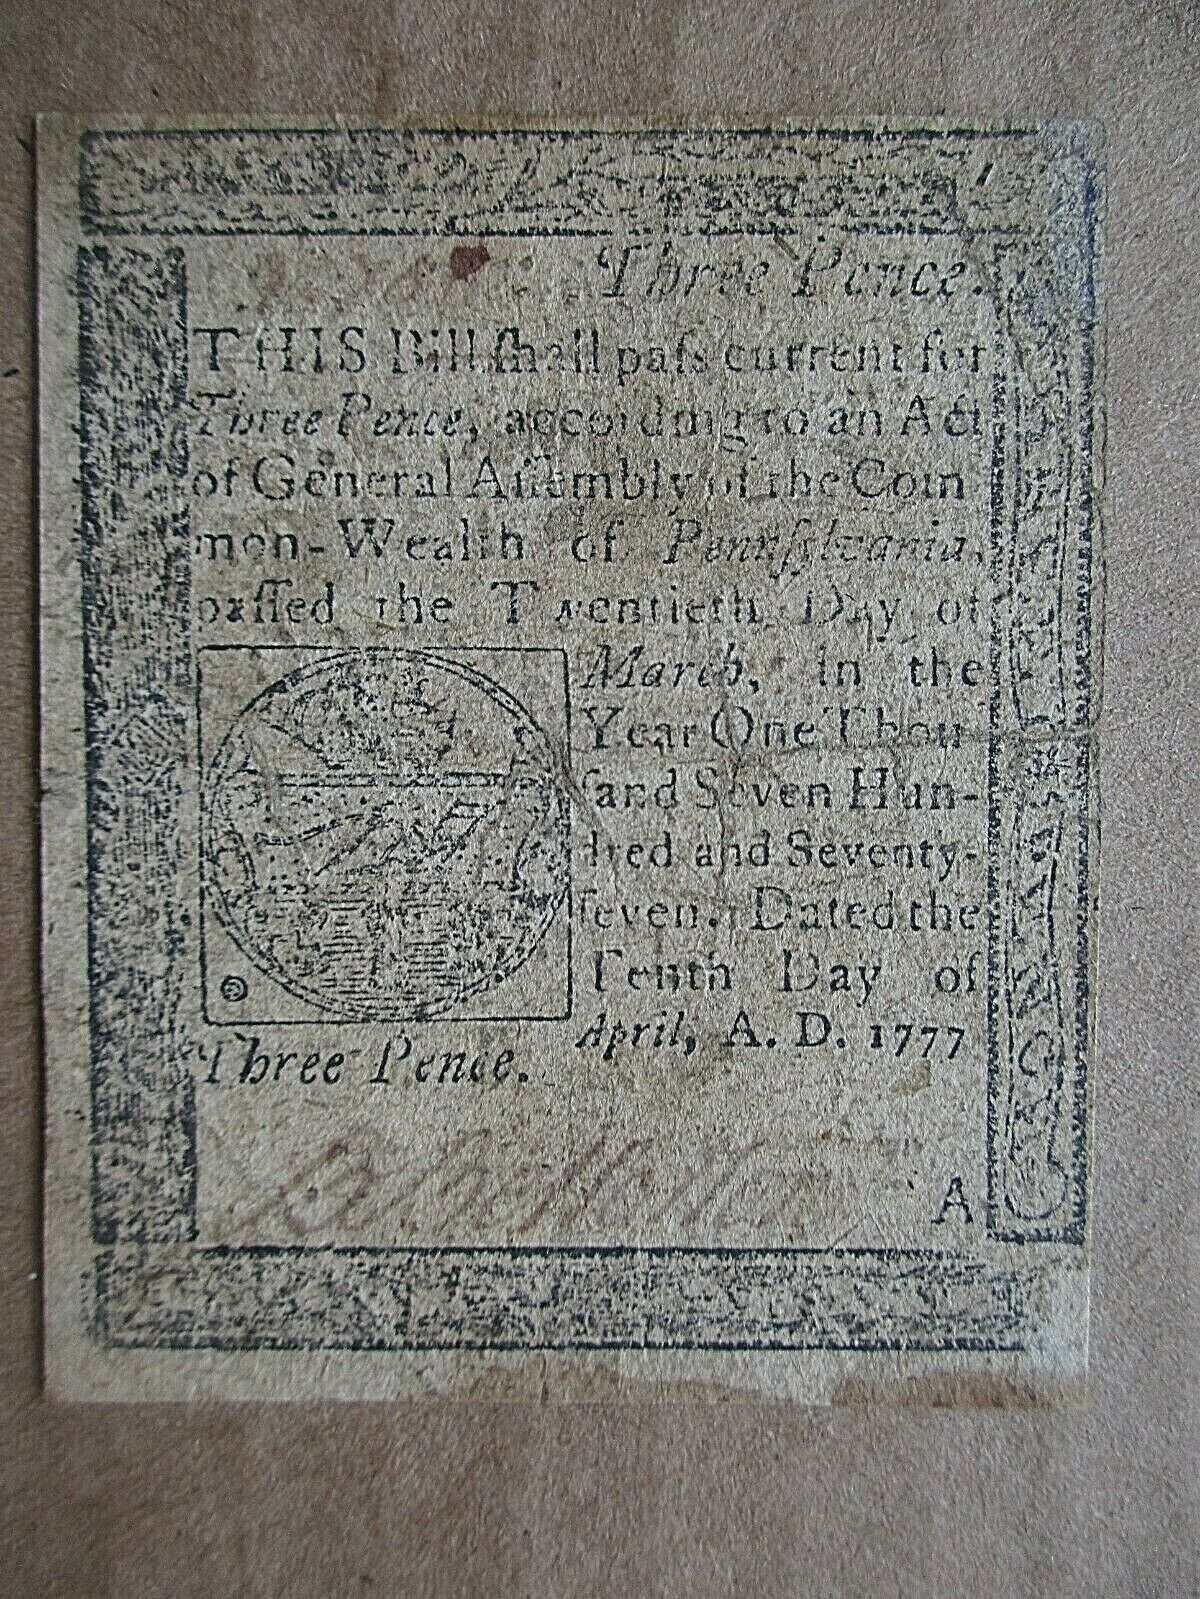 Three Pence.
THIS Bill ſhall paſs current for
Three Pence, according to an Act
of General Aſſembly of the Com
mon-Wealth of Pennſylvania,
paſſed the Twentieth Day of
March, in the
Year One Thou
ſand Seven Hun-
dred and Seventy-
ſeven. Dated the
Tenth Day of
April, A. D. 1777
Three Pence.
A